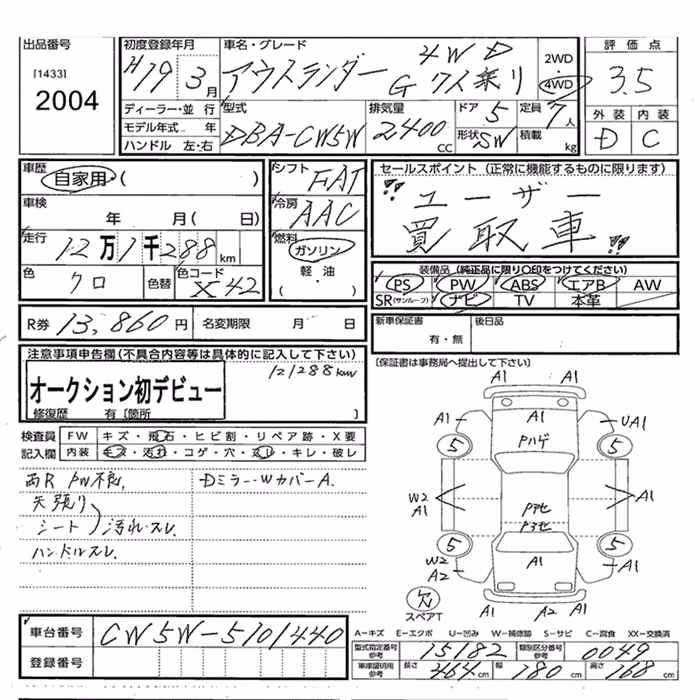 出品番号
[1433]
2004
初度登録年月
H19 3月
車名・グレード
アウトランダー 4WD
G 7人乗り
2WD
4WD
評価点
3.5
外装 内装
D C
ディーラー・並行
モデル年式 年
ハンドル 左・右
型式
DBA-CW5W
排気量
2,400 CC
ドア 5
形状 SW
定員 7人
積載 kg
車歴
自家用 ( )
車検
年 月( 日)
走行
12万1千288 km
色
クロ
色替
色コード
X42
シフト
FAT
冷房
AAC
燃料
ガソリン
軽・油
( )
セールスポイント (正常に機能するものに限ります)
"ユーザー
買取車"
装備品 (純正品に限り○印をつけてください)
PS PW ABS エアB AW
SR(サンルーフ) ナビ TV 本革
R券 13,860円 名変期限 月 日
新車保証書
有・無
後日品
[保証書は事務局へ提出して下さい]
注意事項申告欄(不具合内容等は具体的に記入して下さい)
121288km
オークション初デビュー
修復歴 有[箇所 ]
検査員 FW キズ・飛石・ヒビ割・リペア跡・X要
記入欄 内装 キズ・汚れ・コゲ・穴・スレ・キレ・破レ
両R PW不良,
天張り
シート 汚れ・スレ
ハンドルスレ.
Dミラー・WカバーA.
A1 A1
A1 A1 UA1
Pハゲ
5 5
W2
A1
A1
Pアセ
Pアセ
5 5
W2
A2
A1
A1
欠
スペアT
A1 A2 A1
車台番号 CW5W-5101440
登録番号
A-キズ E-エクボ U-凹み W-補修跡 S-サビ C-腐食 XX-交換済
型式指定番号 参考 15182 類別区分番号 参考 0049
車庫証明用 参考 長さ 464cm 幅 180cm 高さ 168cm